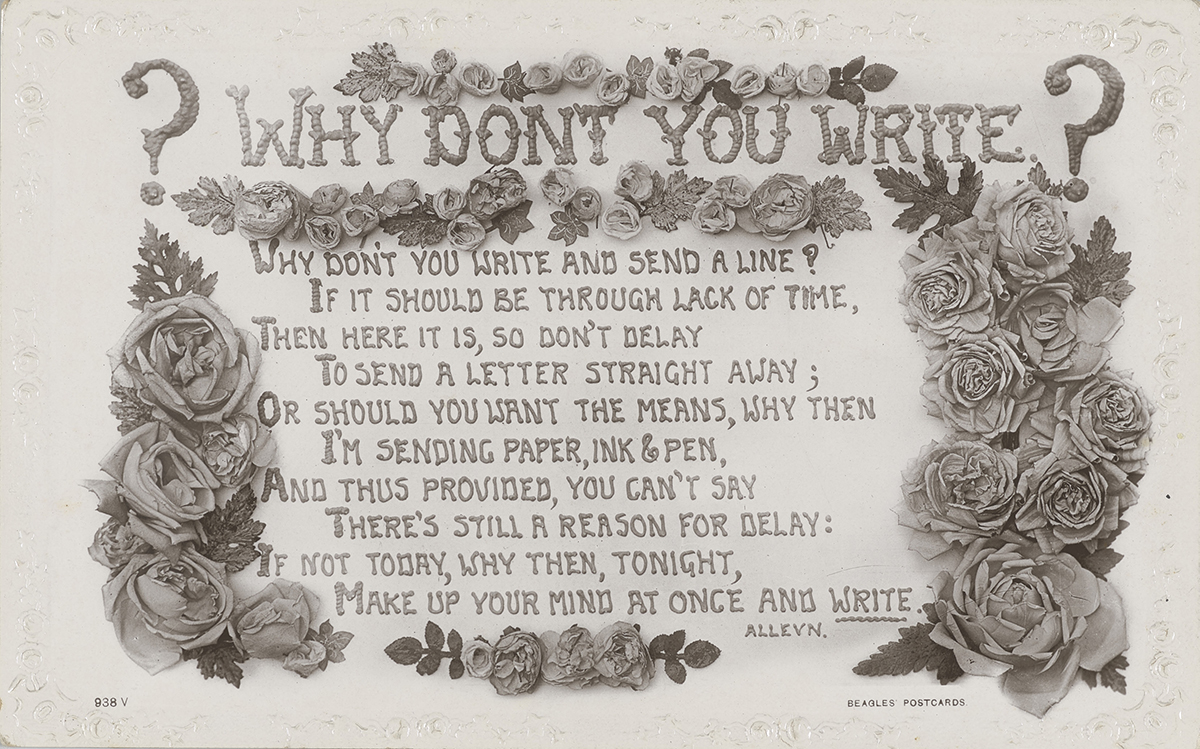 ? WHY DONT YOU WRITE. ?
WHY DON'T YOU WRITE AND SEND A LINE?
IF IT SHOULD BE THROUGH LACK OF TIME,
THEN HERE IT IS, SO DON'T DELAY
TO SEND A LETTER STRAIGHT AWAY;
OR SHOULD YOU WANT THE MEANS, WHY THEN
I'M SENDING PAPER, INK & PEN,
AND THUS PROVIDED, YOU CAN'T SAY
THERE'S STILL A REASON FOR DELAY:
IF NOT TODAY, WHY THEN, TONIGHT,
MAKE UP YOUR MIND AT ONCE AND WRITE.
ALLEYN.
938 V
BEAGLES' POSTCARDS.